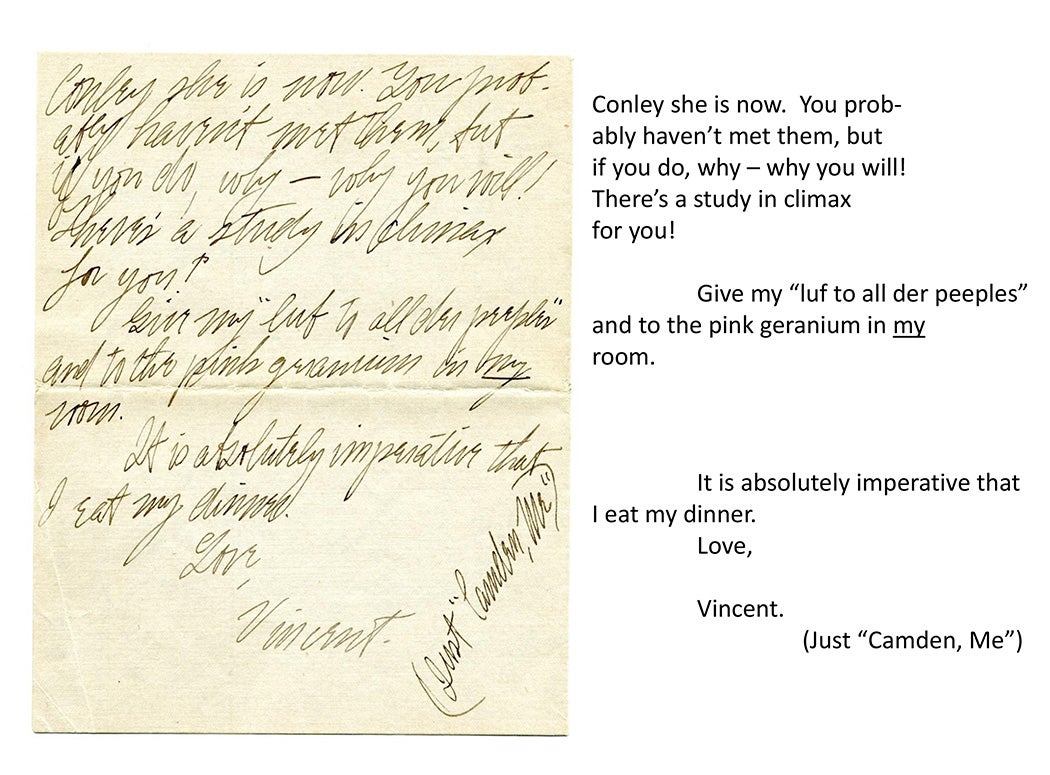 Conley she is now. You prob-
ably haven't met them, but
if you do, why – why you will!
There's a study in climax
for you!
Give my "luf to all der peeples"
and to the pink geranium in my
room.
It is absolutely imperative that
I eat my dinner.
Love,
Vincent.
(Just "Camden, Me")
Conley she is now.  You prob-
ably haven’t met them, but
if you do, why – why you will!
There’s a study in climax
for you!
Give my “luf to all der peeples”
and to the pink geranium in my
room.
It is absolutely imperative that
I eat my dinner.
Love,
Vincent.
(Just “Camden, Me”)